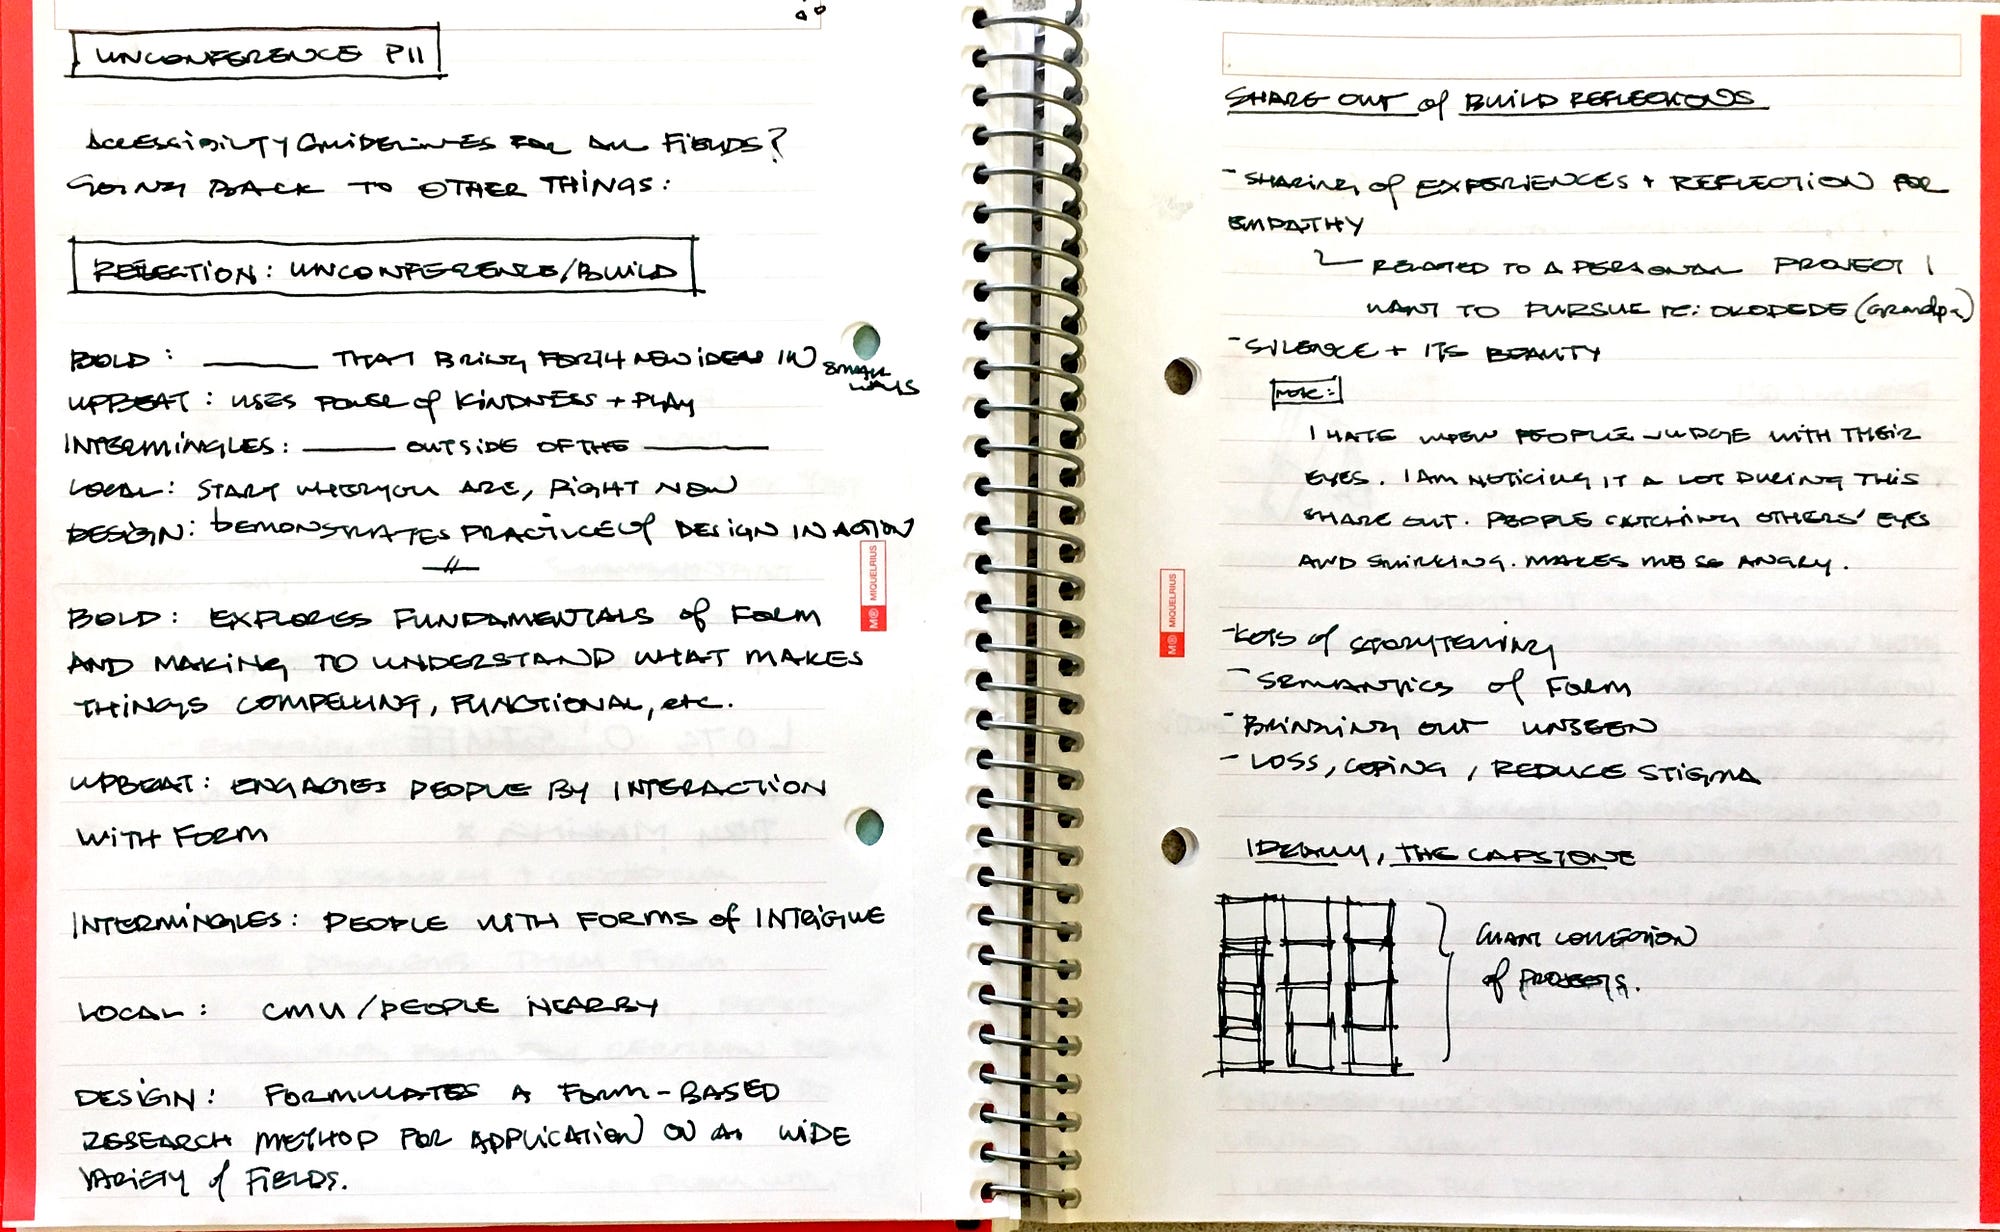 UNCONFERENCE PII
ACCESSIBILITY GUIDELINES FOR ALL FIELDS?
GOING BACK TO OTHER THINGS:
REFLECTION: UNCONFERENCE/BUILD
BOLD: ______ THAT BRING FORTH NEW IDEAS IN SMALL WAYS
UPBEAT: USES POWER of KINDNESS + PLAY
INTERMINGLES: ______ OUTSIDE OF THE ______
LOCAL: START WHERE YOU ARE, RIGHT NOW
DESIGN: DEMONSTRATES PRACTICE of DESIGN IN ACTION
BOLD: EXPLORES FUNDAMENTALS of FORM
AND MAKING TO UNDERSTAND WHAT MAKES
THINGS COMPELLING, FUNCTIONAL, etc.
UPBEAT: ENGAGES PEOPLE BY INTERACTION
WITH FORM
INTERMINGLES: PEOPLE WITH FORMS of INTRIGUE
LOCAL: CMU/PEOPLE NEARBY
DESIGN: FORMULATES A FORM-BASED
RESEARCH METHOD FOR APPLICATION ON A WIDE
VARIETY of FIELDS.
MIQUELRIUS
SHARE OUT of BUILD REFLECTIONS
- SHARING of EXPERIENCES + REFLECTION FOR
EMPATHY
RELATED TO A PERSONAL PROJECT I
WANT TO PURSUE re: OKODEDE (Grandpa)
- SILENCE + ITS BEAUTY
NOTE:
I HATE WHEN PEOPLE JUDGE WITH THEIR
EYES. I AM NOTICING IT A LOT DURING THIS
SHARE OUT. PEOPLE CATCHING OTHERS' EYES
AND SMIRKING. MAKES ME SO ANGRY.
- LOTS of STORYTELLING
- SEMANTICS of FORM
- BRINGING OUT UNSEEN
- LOSS, COPING, REDUCE STIGMA
IDEALLY, THE CAPSTONE
GIANT COLLECTION
of PROJECTS.
MIQUELRIUS